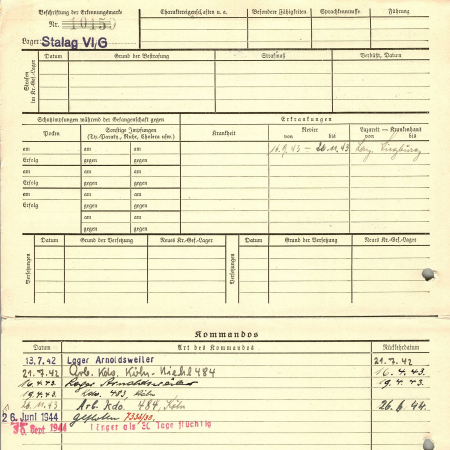 Beschriftung der Erkennungsmarke
Nr. 10159
Lager: Stalag VI/G
Charaktereigenschaften u. a.
Besondere Fähigkeiten
Sprachkenntnisse
Führung
Strafen im Kr.-Gef.-Lager
Datum
Grund der Bestrafung
Strafmaß
Verbüßt, Datum
Schutzimpfungen während der Gefangenschaft gegen
Erkrankungen
Pocken
Sonstige Impfungen
(Ty.-Paratyp., Ruhr, Cholera usw.)
Krankheit
Revier
von bis
Lazarett — Krankenhaus
von bis
am am am
16. 43 — 26.11.43 Siegburg
Erfolg gegen gegen
am am am
Erfolg gegen gegen
am am am
Erfolg gegen gegen
am am
gegen gegen
am am
gegen gegen
Versetzung
Datum
Grund der Versetzung
Neues Kr.-Gef.-Lager
Versetzung
Datum
Grund der Versetzung
Neues Kr.-Gef.-Lager
Kommandos
Datum Art des Kommandos Rückkehrdatum
13.7.42 Lager Arnoldsweiler 21.7.42
21.7.42 Arb. Kdo. Köln-Niehl 484 16.4.43.
16.4.43. Lager Arnoldsweiler 19.4.43.
19.4.43. Kdo. 483, Köln
26.11.43 Arb. Kdo. 484, Köln 26.6.44.
26. Juni 1944 geflohen
Sept. 1944 länger als 30 Tage flüchtig